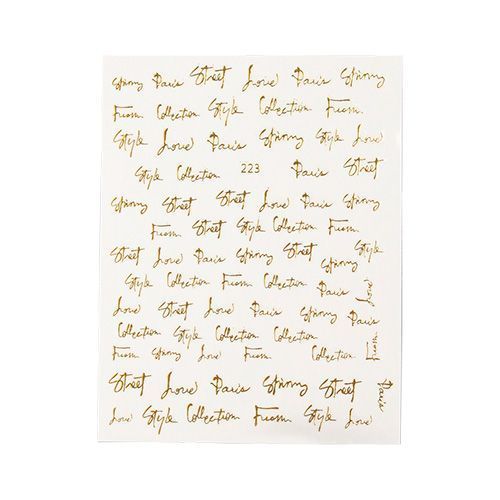 Spinny Paris Street Love Paris Spinny
From Collection Style Collection From
Style Love Paris Spinny Style Love
Style Collection 223 Paris Street
Spinny Street Street Love Paris Spinny
From Street Style Collection From
Street Love Paris Spinny Street Style
Style Collection From Collection Spinny
Love Street Love Paris Spinny Paris Love
Collection Style Collection
From Spinny Love From Collection From
Street Love Paris Spinny Street
Love Style Collection From Style Love Paris